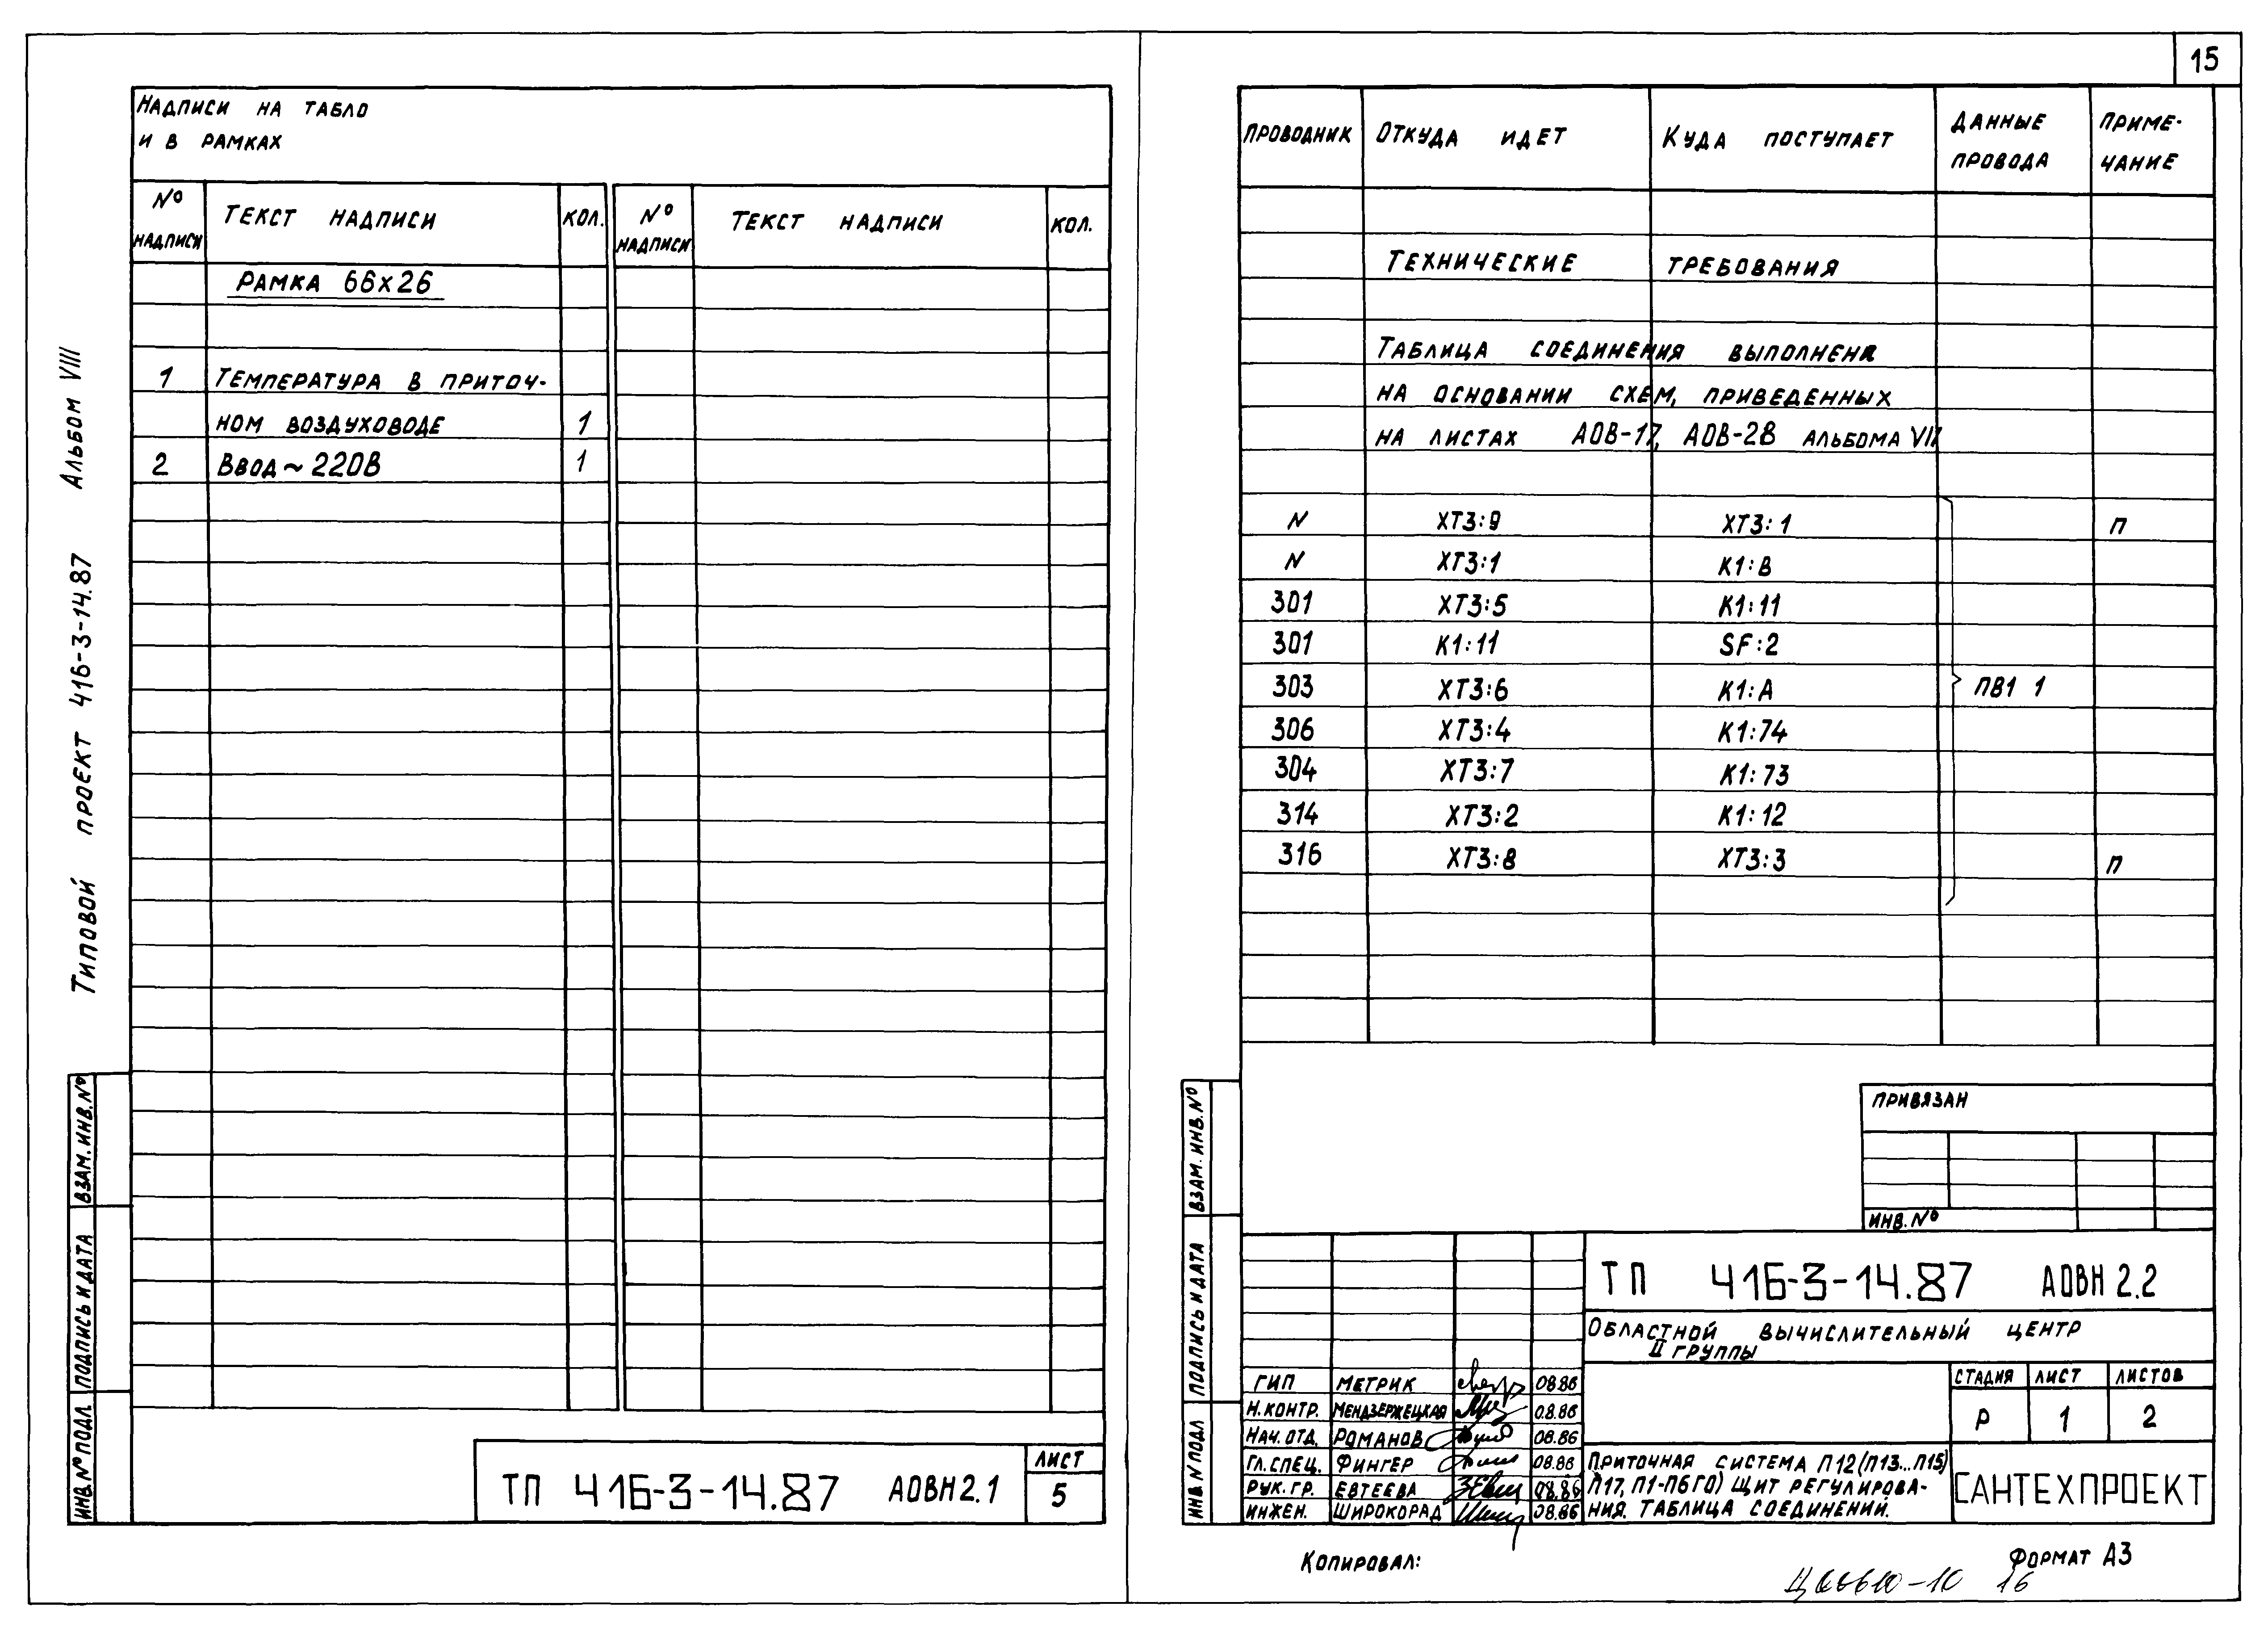 15
Альбом VIII
Типовой проект 416-3-14.87
Надписи на табло
и в рамках
№ надписи Текст надписи Кол. № надписи Текст надписи Кол.
Рамка 66х26
1 Температура в приточ-
ном воздуховоде 1
2 Ввод ~ 220В 1
Взам. инв. №
Подпись и дата
Инв. № подл.
ТП 416-3-14.87 АОВН2.1
Лист
5
Проводник Откуда идет Куда поступает Данные провода Приме-
чание
Технические требования
Таблица соединения выполнена
на основании схем, приведенных
на листах АОВ-17, АОВ-28 альбома VII
N ХТ3:9 ХТ3:1 П
N ХТ3:1 К1:В
301 ХТ3:5 К1:11
301 К1:11 SF:2
303 ХТ3:6 К1:А ПВ1 1
306 ХТ3:4 К1:74
304 ХТ3:7 К1:73
314 ХТ3:2 К1:12
316 ХТ3:8 ХТ3:3 П
Взам. инв. №
Подпись и дата
Инв. № подл
Привязан
Инв. №
ТП 416-3-14.87 АОВН 2.2
Областной вычислительный центр
II группы
ГИП Метрик 08.86
Н.контр. Мендзержецкая 08.86
Нач. отд. Романов 08.86
Гл. спец. Фингер 08.86
Рук. гр. Евтеева 08.86
Инжен. Широкорад 08.86
Стадия Лист Листов
Р 1 2
Приточная система П12 (П13...П15)
П17, П1-П6 ГО) Щит регулирова-
ния. Таблица соединений.
САНТЕХПРОЕКТ
Копировал:
Формат А3
16